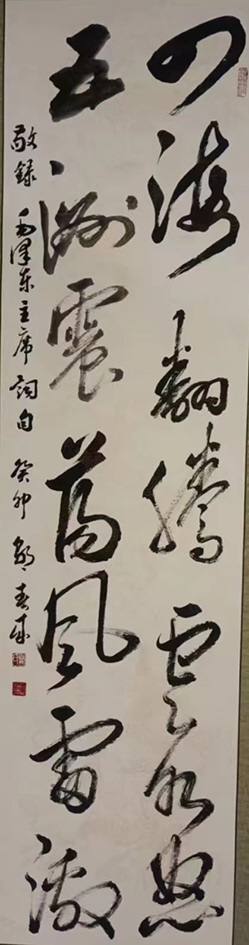 四海翻腾云水怒
五洲震荡风雷激
敬録毛泽东主席词句 癸卯 春